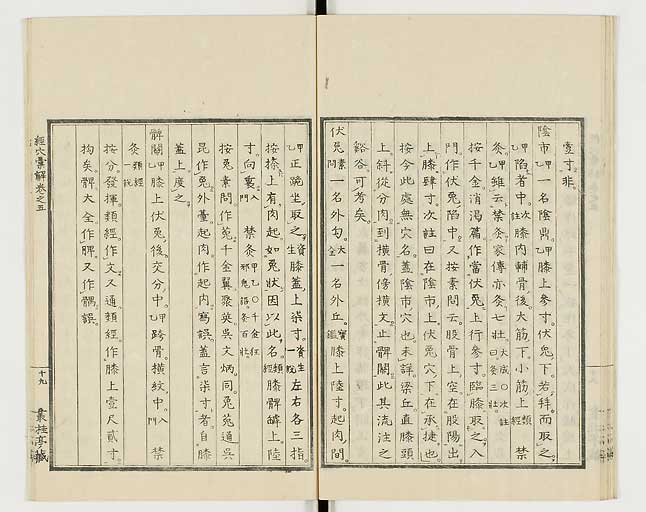 壹寸非。
陰市甲乙一名陰鼎。甲乙膝上參寸。伏兔下。若拜而取之。
甲乙陷者中。次註膝內輔骨。後大筋下。小筋上。類經
灸甲乙維云禁灸家傳亦灸七壯。大成〇次註曰灸三壯
按千金消渴篇作當伏兔上行參寸。臨膝取之。入
門作伏兔陷中。又按素問云。股骨上空在股陽。出
上膝肆寸。次註曰在陰市上。伏兔穴下。在承揵也。
按今此處無穴名。蓋陰市穴也。未詳。梁丘直膝頭
上。斜從分肉。到橫骨傍橫文。止髀關。此其流注之
谿谷。可考矣。
伏兔素問一名外勾。大全一名外丘。寶鑑膝上陸寸。起肉間。
甲乙正跪坐取之。資生膝蓋上柒寸。資生一說左右各三指
按捺。上有肉起如兔狀。因以此名。類經膝髀罅上陸
寸。向裏。入門 禁灸甲乙〇千金狂邪鬼語灸百壯
按兔。素問作菟。千金翼聚英。吳文炳同。兔菟通。吳
昆作兔。外臺起肉作起肉寫誤。蓋言柒寸者。自膝
蓋上度之。
髀關甲乙膝上伏兔後。交分中。甲乙跨骨橫紋中。入門 禁
灸類經一說
按分。發揮類經作文。又通。類經作膝上壹尺貳寸。
拘矣。髀大全作脾。又作髃誤。
經穴彙解卷之五
十九
叢桂亭藏